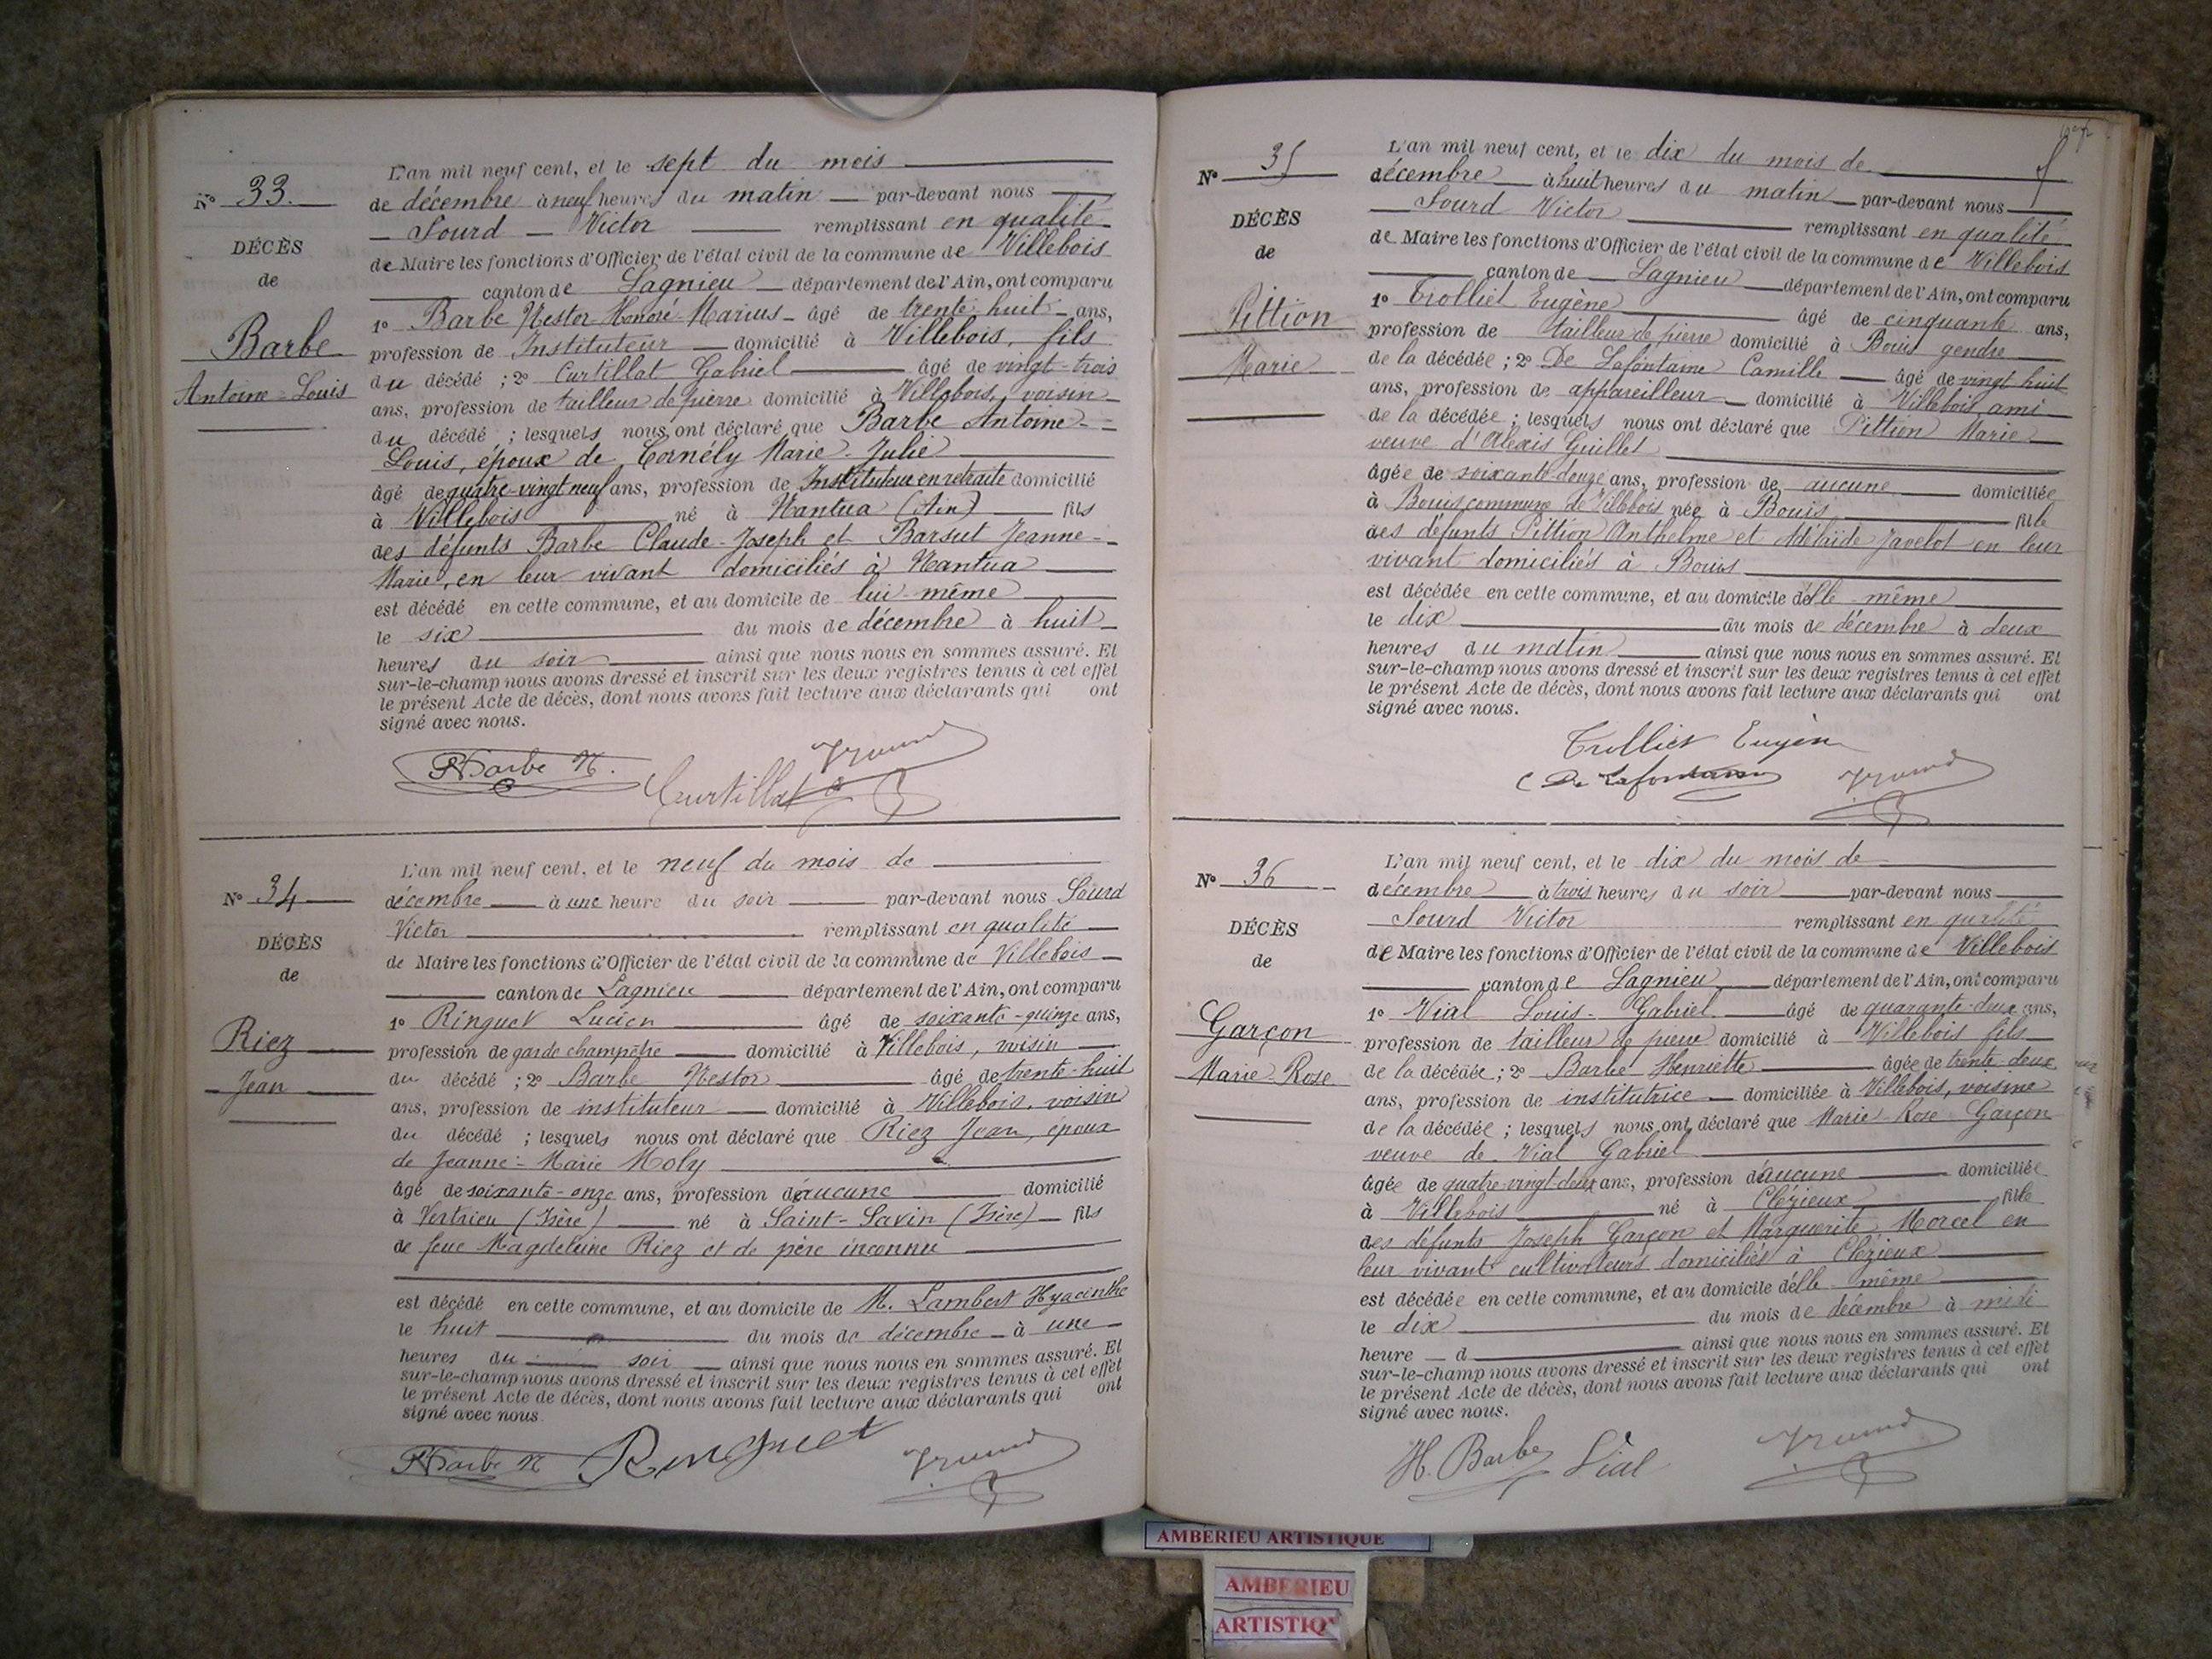 N° 33
DÉCÈS
de
Barbe
Antoine-Louis
L'an mil neuf cent, et le sept du mois
de décembre à neuf heures du matin par-devant nous
Sourd Victor remplissant en qualité
de Maire les fonctions d'Officier de l'état civil de la commune de Villebois
canton de Lagnieu département de l'Ain, ont comparu
1° Barbe Nestor-Honoré-Marius âgé de trente-huit ans,
profession de Instituteur domicilié à Villebois, fils
du décédé ; 2° Curtillat Gabriel âgé de vingt-trois
ans, profession de tailleur de pierre domicilié à Villebois, voisin
du décédé ; lesquels nous ont déclaré que Barbe Antoine-
Louis, époux de Cornély Marie-Julie
âgé de quatre-vingt neuf ans, profession de Instituteur en retraite domicilié
à Villebois né à Nantua (Ain) fils
des défunts Barbe Claude-Joseph et Barsut Jeanne-
Marie, en leur vivant domiciliés à Nantua
est décédé en cette commune, et au domicile de lui-même
le six du mois de décembre à huit
heures du soir ainsi que nous nous en sommes assuré. Et
sur-le-champ nous avons dressé et inscrit sur les deux registres tenus à cet effet
le présent Acte de décès, dont nous avons fait lecture aux déclarants qui ont
signé avec nous.
Barbe N.
Curtillat G
N° 34
DÉCÈS
de
Riez
Jean
L'an mil neuf cent, et le neuf du mois de
décembre à une heure du soir par-devant nous Sourd
Victor remplissant en qualité
de Maire les fonctions d'Officier de l'état civil de la commune de Villebois
canton de Lagnieu département de l'Ain, ont comparu
1° Ringuet Lucien âgé de soixante-quinze ans,
profession de garde champêtre domicilié à Villebois, voisin
du décédé ; 2° Barbe Nestor âgé de trente-huit
ans, profession de instituteur domicilié à Villebois, voisin
du décédé ; lesquels nous ont déclaré que Riez Jean, époux
de Jeanne-Marie Moly
âgé de soixante-onze ans, profession d'aucune domicilié
à Vertrieu (Isère) né à Saint-Savin (Isère) fils
de feue Magdeleine Riez et de père inconnu
est décédé en cette commune, et au domicile de M. Lambert Hyacinthe
le huit du mois de décembre à une
heures du soir ainsi que nous nous en sommes assuré. Et
sur-le-champ nous avons dressé et inscrit sur les deux registres tenus à cet effet
le présent Acte de décès, dont nous avons fait lecture aux déclarants qui ont
signé avec nous.
Barbe N Ringuet
N° 35
DÉCÈS
de
Pittion
Marie
L'an mil neuf cent, et le dix du mois de
décembre à huit heures du matin par-devant nous
Sourd Victor remplissant en qualité
de Maire les fonctions d'Officier de l'état civil de la commune de Villebois
canton de Lagnieu département de l'Ain, ont comparu
1° Trolliet Eugène âgé de cinquante ans,
profession de tailleur de pierre domicilié à Bouis gendre
de la décédée ; 2° De Lafontaine Camille âgé de vingt huit
ans, profession de appareilleur domicilié à Villebois, ami
de la décédée ; lesquels nous ont déclaré que Pittion Marie
veuve d'Alexis Guillet
âgée de soixante-douze ans, profession de aucune domiciliée
à Bouis commune de Villebois née à Bouis fille
des défunts Pittion Anthelme et Adélaïde Javelot en leur
vivant domiciliés à Bouis
est décédée en cette commune, et au domicile d'elle-même
le dix du mois de décembre à deux
heures du matin ainsi que nous nous en sommes assuré. Et
sur-le-champ nous avons dressé et inscrit sur les deux registres tenus à cet effet
le présent Acte de décès, dont nous avons fait lecture aux déclarants qui ont
signé avec nous.
Trolliet Eugène
C De Lafontaine
N° 36
DÉCÈS
de
Garçon
Marie-Rose
L'an mil neuf cent, et le dix du mois de
décembre à trois heures du soir par-devant nous
Sourd Victor remplissant en qualité
de Maire les fonctions d'Officier de l'état civil de la commune de Villebois
canton de Lagnieu département de l'Ain, ont comparu
1° Vial Louis-Gabriel âgé de quarante-deux ans,
profession de tailleur de pierre domicilié à Villebois fils
de la décédée ; 2° Barbe Henriette âgée de trente-deux
ans, profession de institutrice domiciliée à Villebois, voisine
de la décédée ; lesquels nous ont déclaré que Marie-Rose Garçon
veuve de Vial Gabriel
âgée de quatre-vingt-deux ans, profession d'aucune domiciliée
à Villebois né à Clézieux fille
des défunts Joseph Garçon et Marguerite Morcel en
leur vivant cultivateurs domiciliés à Clézieux
est décédée en cette commune, et au domicile d'elle-même
le dix du mois de décembre à midi
heure d ainsi que nous nous en sommes assuré. Et
sur-le-champ nous avons dressé et inscrit sur les deux registres tenus à cet effet
le présent Acte de décès, dont nous avons fait lecture aux déclarants qui ont
signé avec nous.
H. Barbe Vial
AMBERIEU ARTISTIQUE
AMBERIEU
ARTISTIQ